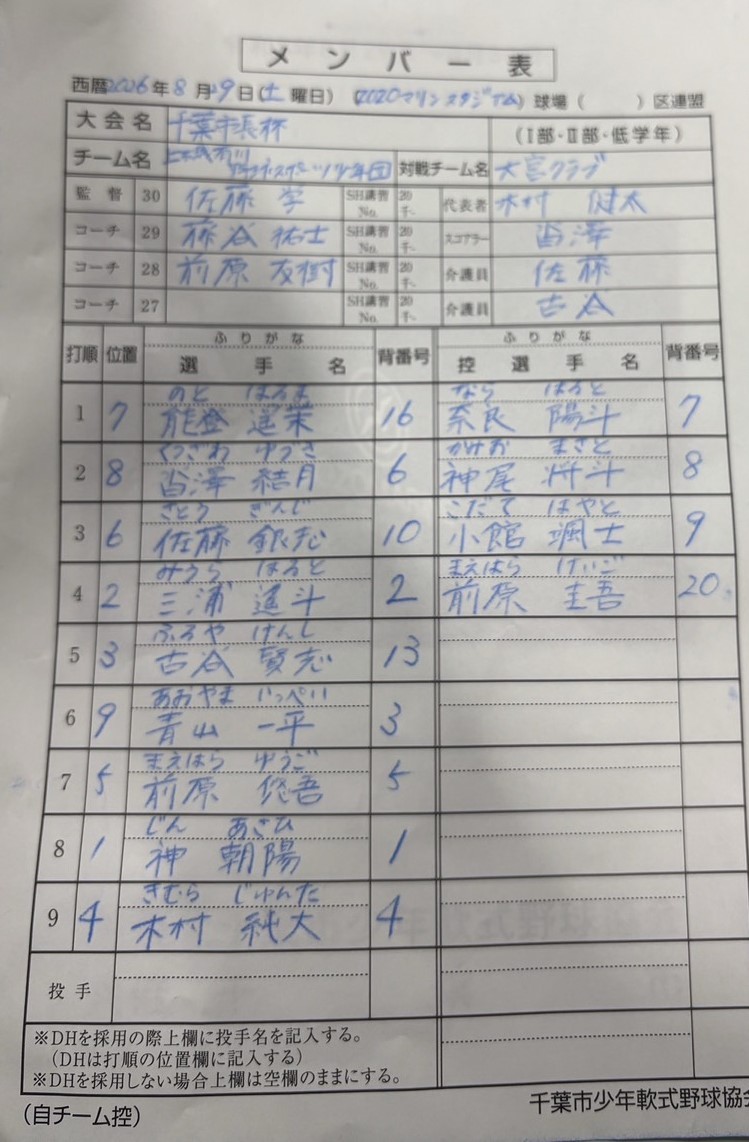 メンバー表
西暦2026年8月29日(土曜日) (ZOZOマリンスタジアム)球場( )区連盟
大会名 千葉市長杯 (Ⅰ部・Ⅱ部・低学年)
チーム名 スポーツ少年団 対戦チーム名 大宮クラブ
監督 30 佐藤 学 SH講習No. 20 千- 代表者 木村 健太
コーチ 29 藤谷 祐士 SH講習No. 20 千- スコアラー 當澤
コーチ 28 前原 友樹 SH講習No. 20 千- 介護員 佐藤
コーチ 27 SH講習No. 20 千- 介護員 古谷
打順 位置 ふりがな 選手名 背番号 ふりがな 控選手名 背番号
のと はるま なら はると
1 7 能登 遥茉 16 奈良 陽斗 7
ゆづき かみお まさと
2 8 當澤 結月 6 神尾 将斗 8
さとう ぎんじ こだて はやと
3 6 佐藤 銀志 10 小館 颯士 9
みうら はると まえはら けいご
4 2 三浦 遥斗 2 前原 圭吾 20
ふるや けんし
5 3 古谷 賢志 13
あおやま いっぺい
6 9 青山 一平 3
まえはら ゆうご
7 5 前原 悠吾 5
じん あさひ
8 1 神 朝陽 1
きむら じゅんた
9 4 木村 純大 4
投手
※DHを採用の際上欄に投手名を記入する。
(DHは打順の位置欄に記入する)
※DHを採用しない場合上欄は空欄のままにする。
(自チーム控) 千葉市少年軟式野球協会